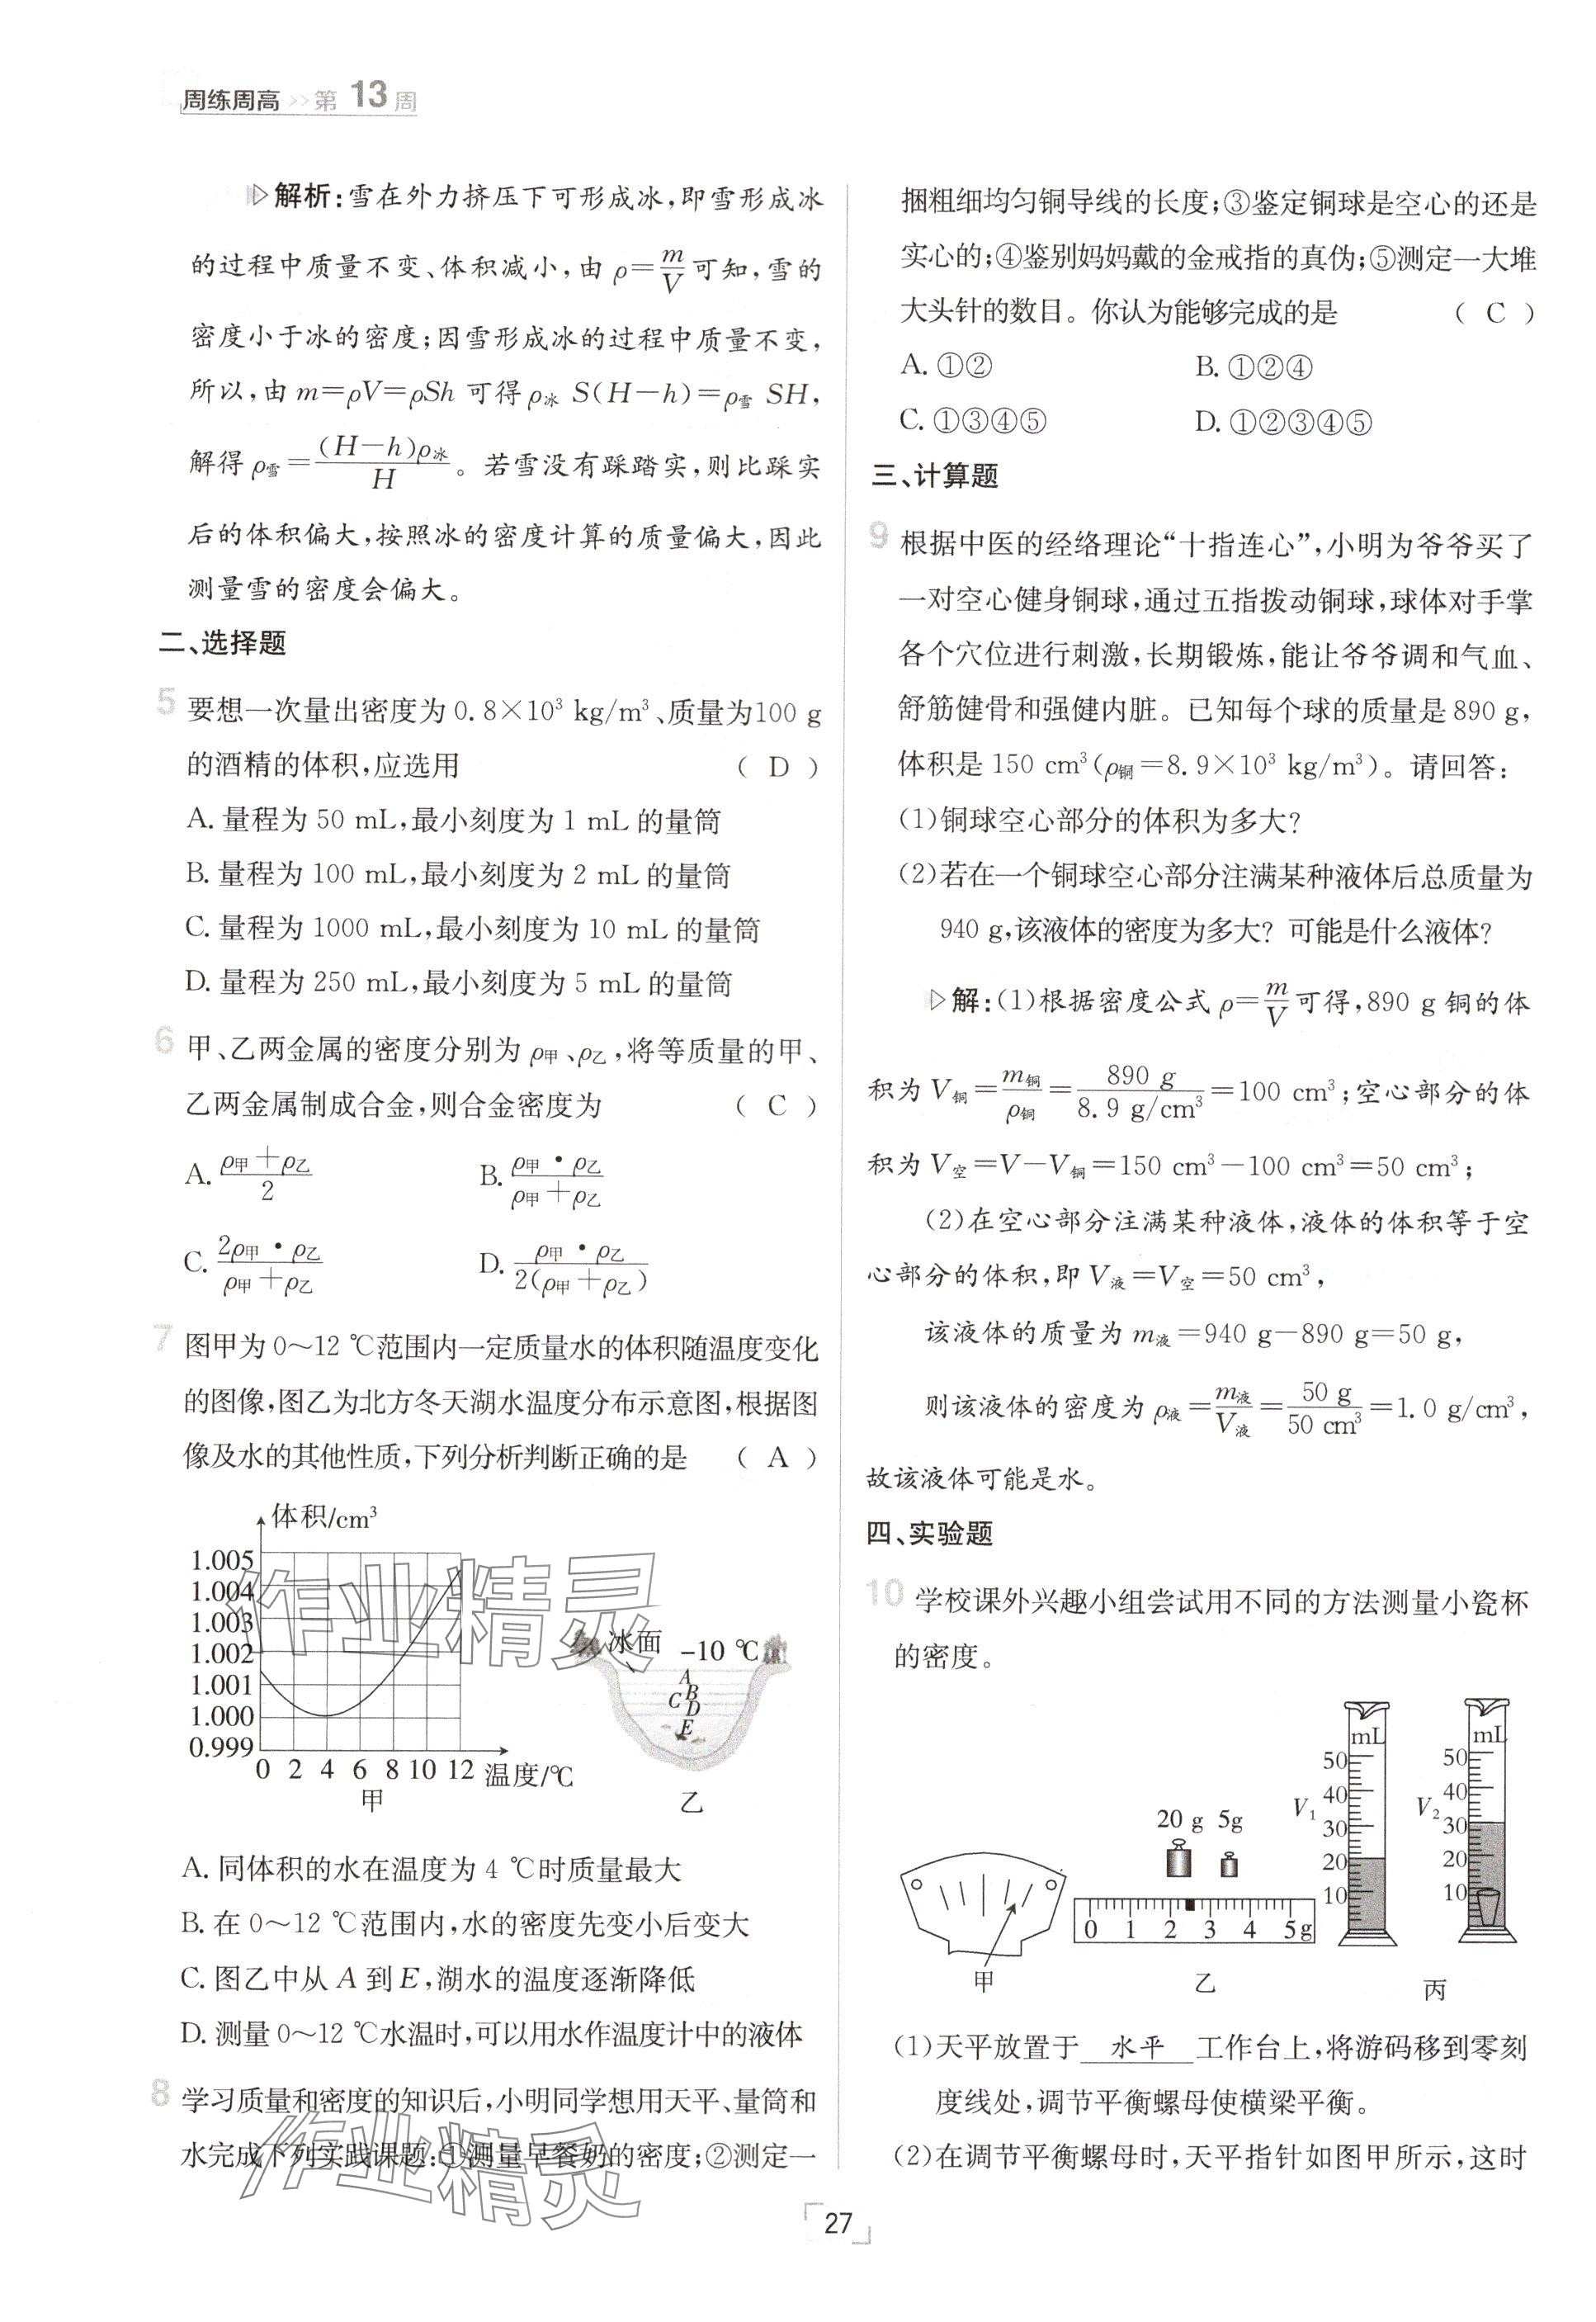 周练周高 >> 第 13 周
▷解析:雪在外力挤压下可形成冰,即雪形成冰
的过程中质量不变、体积减小,由 ρ=m/V 可知,雪的
密度小于冰的密度;因雪形成冰的过程中质量不变,
所以,由 m=ρV=ρSh 可得 ρ冰 S(H-h)=ρ雪 SH,
解得 ρ雪=(H-h)ρ冰/H。若雪没有踩踏实,则比踩实
后的体积偏大,按照冰的密度计算的质量偏大,因此
测量雪的密度会偏大。
二、选择题
5 要想一次量出密度为 0.8×10³ kg/m³、质量为100 g
的酒精的体积,应选用 ( D )
A. 量程为 50 mL,最小刻度为 1 mL 的量筒
B. 量程为 100 mL,最小刻度为 2 mL 的量筒
C. 量程为 1000 mL,最小刻度为 10 mL 的量筒
D. 量程为 250 mL,最小刻度为 5 mL 的量筒
6 甲、乙两金属的密度分别为 ρ甲、ρ乙,将等质量的甲、
乙两金属制成合金,则合金密度为 ( C )
A. (ρ甲+ρ乙)/2 B. (ρ甲·ρ乙)/(ρ甲+ρ乙)
C. (2ρ甲·ρ乙)/(ρ甲+ρ乙) D. (ρ甲·ρ乙)/(2(ρ甲+ρ乙))
7 图甲为 0～12 ℃范围内一定质量水的体积随温度变化
的图像,图乙为北方冬天湖水温度分布示意图,根据图
像及水的其他性质,下列分析判断正确的是 ( A )
体积/cm³
1.005
1.004
1.003
1.002
1.001
1.000
0.999
0 2 4 6 8 10 12 温度/℃
甲
冰面 -10 ℃
A
B
C
D
E
乙
作业精灵
A. 同体积的水在温度为 4 ℃时质量最大
B. 在 0～12 ℃范围内,水的密度先变小后变大
C. 图乙中从 A 到 E,湖水的温度逐渐降低
D. 测量 0～12 ℃水温时,可以用水作温度计中的液体
8 学习质量和密度的知识后,小明同学想用天平、量筒和
水完成下列实践课题:①测量早餐奶的密度;②测定一
作业精灵
捆粗细均匀铜导线的长度;③鉴定铜球是空心的还是
实心的;④鉴别妈妈戴的金戒指的真伪;⑤测定一大堆
大头针的数目。你认为能够完成的是 ( C )
A. ①② B. ①②④
C. ①③④⑤ D. ①②③④⑤
三、计算题
9 根据中医的经络理论“十指连心”,小明为爷爷买了
一对空心健身铜球,通过五指拨动铜球,球体对手掌
各个穴位进行刺激,长期锻炼,能让爷爷调和气血、
舒筋健骨和强健内脏。已知每个球的质量是 890 g,
体积是 150 cm³(ρ铜=8.9×10³ kg/m³)。请回答:
(1)铜球空心部分的体积为多大?
(2)若在一个铜球空心部分注满某种液体后总质量为
940 g,该液体的密度为多大? 可能是什么液体?
▷解:(1)根据密度公式 ρ=m/V 可得,890 g 铜的体
积为 V铜=m铜/ρ铜=890 g/8.9 g/cm³=100 cm³;空心部分的体
积为 V空=V-V铜=150 cm³-100 cm³=50 cm³;
(2)在空心部分注满某种液体,液体的体积等于空
心部分的体积,即 V液=V空=50 cm³,
该液体的质量为 m液=940 g-890 g=50 g,
则该液体的密度为 ρ液=m液/V液=50 g/50 cm³=1.0 g/cm³,
故该液体可能是水。
四、实验题
10 学校课外兴趣小组尝试用不同的方法测量小瓷杯
的密度。
甲
20 g 5g
0 1 2 3 4 5g
乙
mL
50
40
30
20
10
V₁
mL
50
40
30
20
10
V₂
丙
(1)天平放置于 水平 工作台上,将游码移到零刻
度线处,调节平衡螺母使横梁平衡。
(2)在调节平衡螺母时,天平指针如图甲所示,这时
27